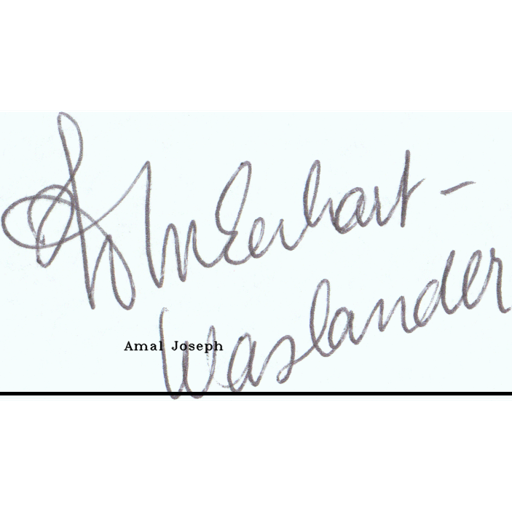 Erhart-
Waslander
Amal Joseph